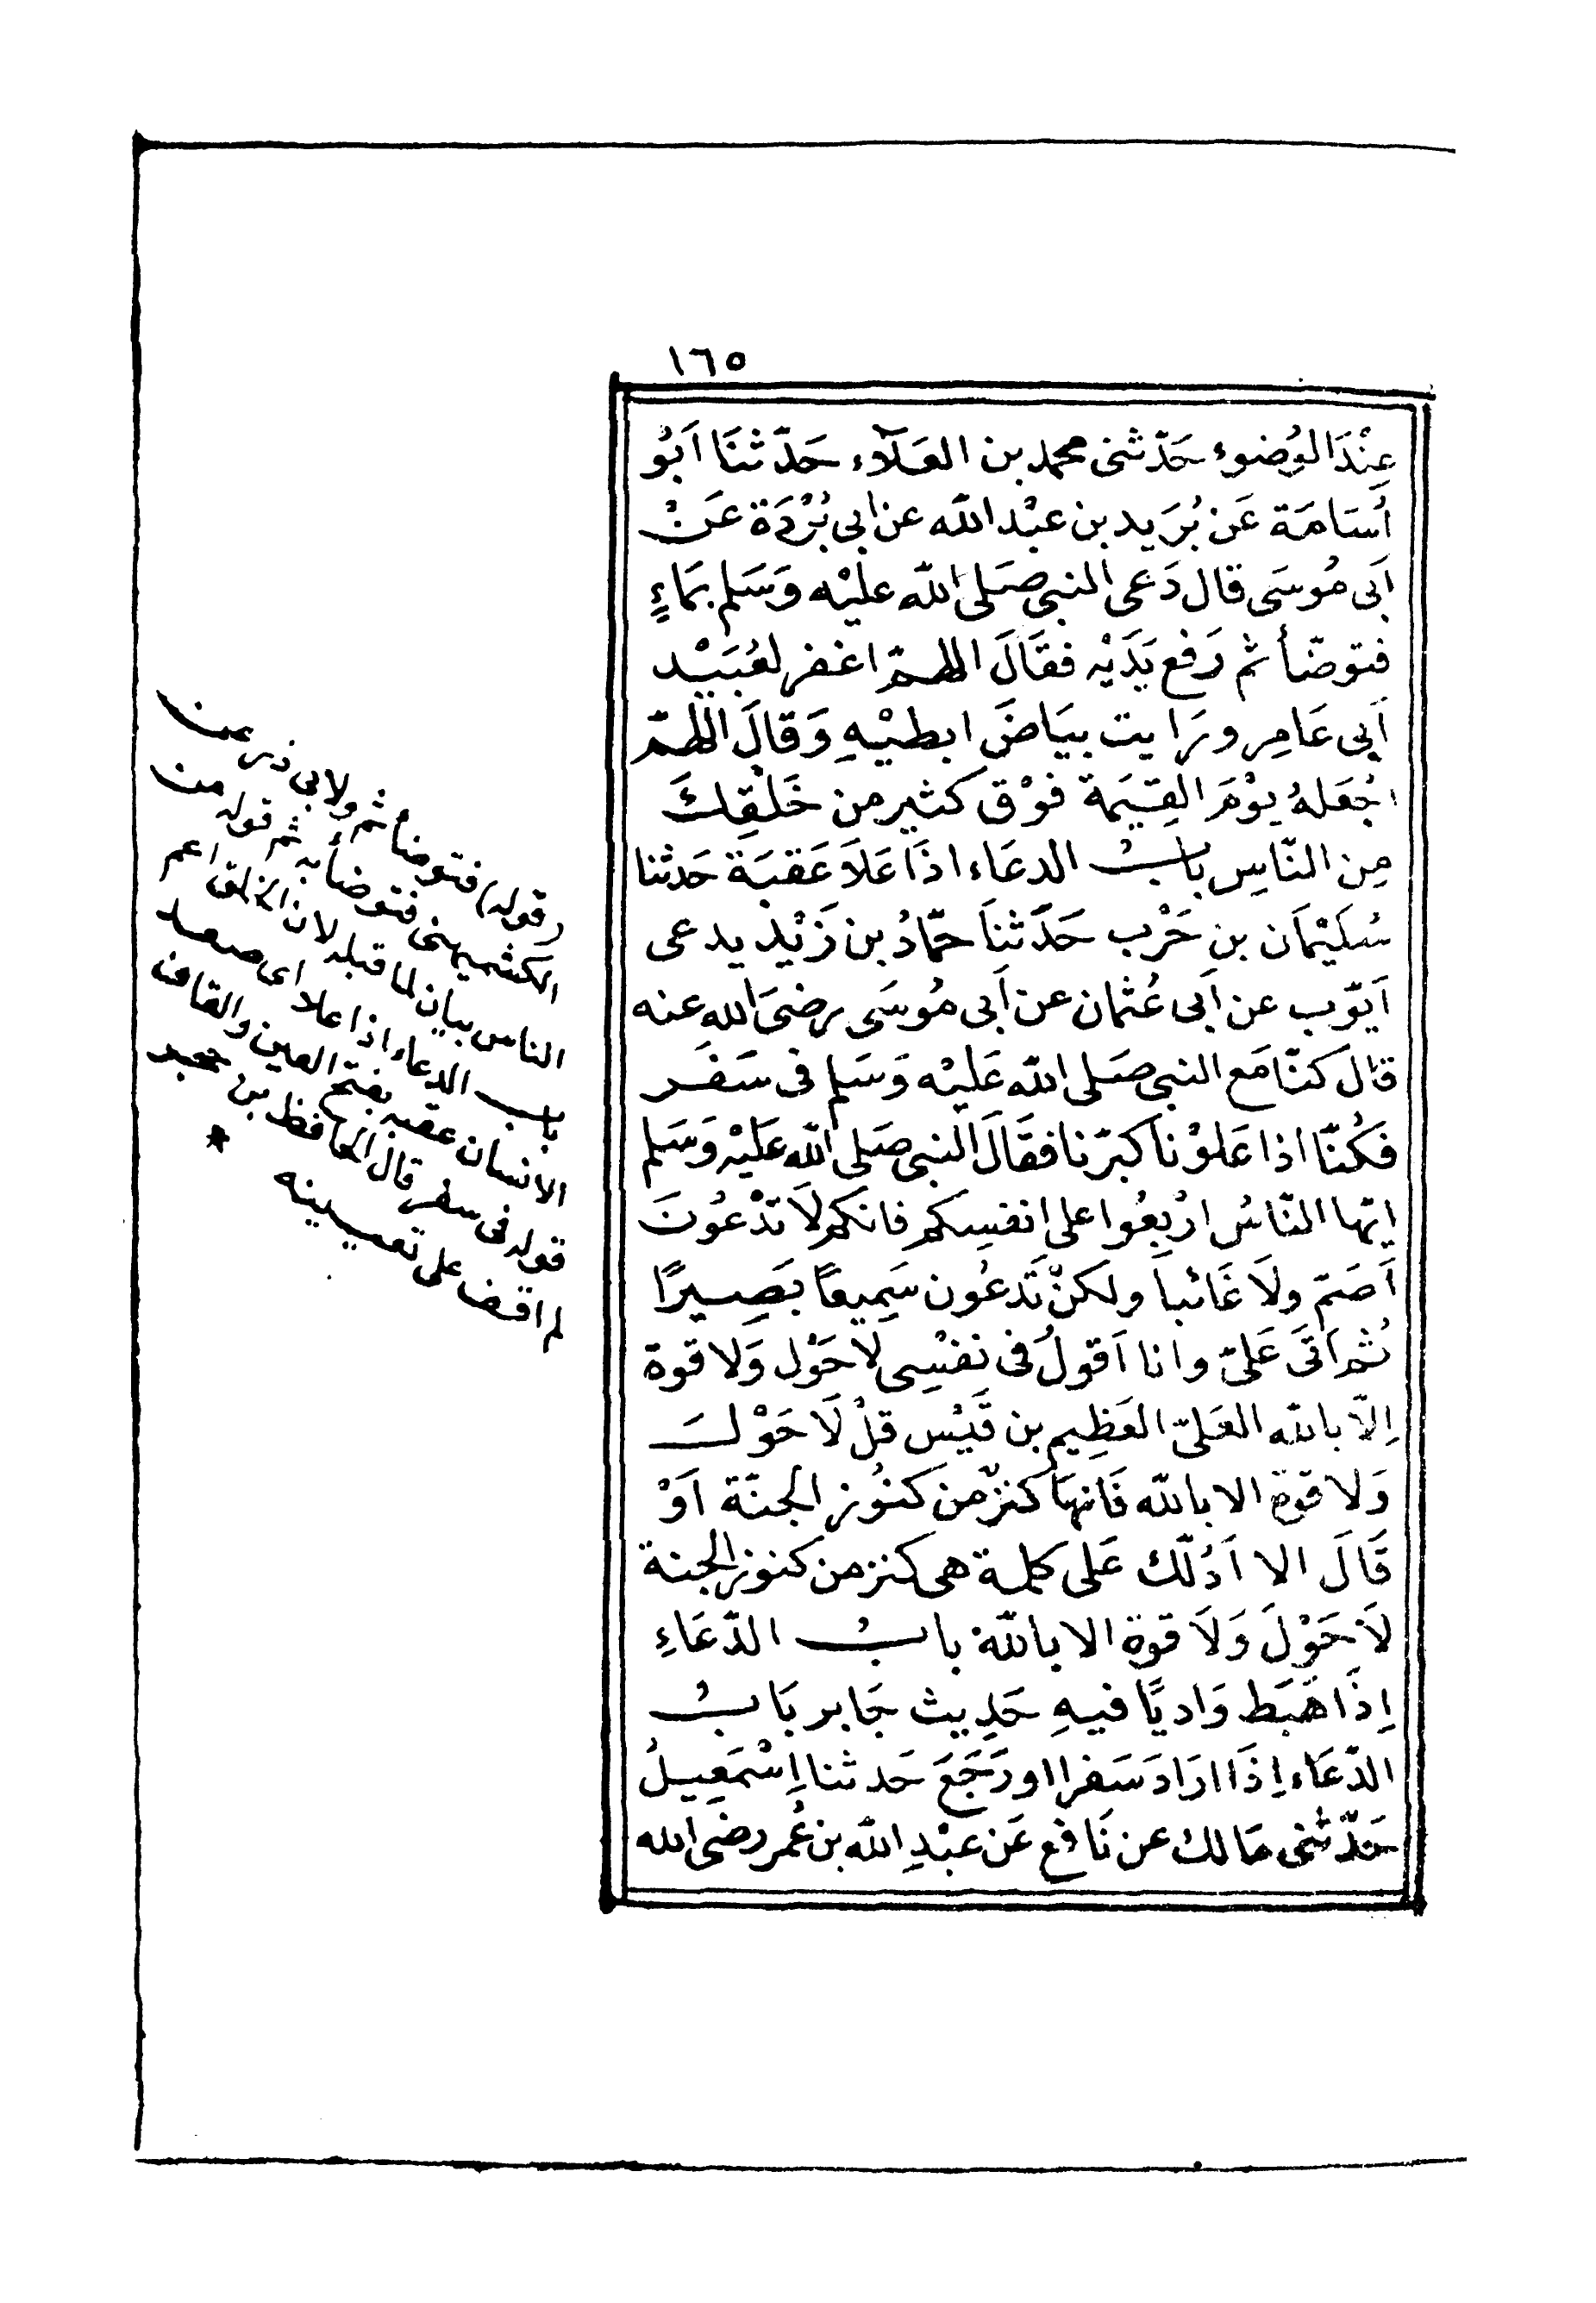 ١٦٥
عِنْدَ الوُضوء حَدّثنى محمد بن العَلَآء حَدّثنَا اَبُو
اُسَامَة عَن بُرَيد بن عبْد الله عن ابى بُرْدَة عَنْ
اَبى مُوسَى قال دَعى النبى صَلى الله عليْه وَسَلم بمَاءٍ
فتوضّأ ثم رَفع يَدَيْه فقَالَ اللهمّ اغفر لعُبَيْد
اَبى عَامِر ورَايت بيَاضَ ابطيْهِ وَقالَ اللهمّ
اجْعَلهُ يوْمَ القِيٰمَة فوْق كثير من خَلْقِكَ
مِن النّاسِ بابُ الدعَاء اذَا عَلَا عَقبَة حَدثنا
سُليْمَان بن حَرْب حَدَّثنَا حمّادُ بن زَيْد يدعى
اَيّوب عن اَبى عُثمان عن اَبى مُوسَى رضىَ الله عنه
قالَ كنّا مَع النبى صَلى الله عَليْه وَسَلم فى سَفَر
فَكُنّا اذا عَلوْنا كبّرنا فقَالَ النبى صَلى الله عَليْه وَسَلم
ايّها النّاسُ ارْبِعُوا على انفسِكم فانكم لَا تدْعُونَ
اَصَمّ ولَا غَائباً ولكنْ تَدعُون سَمِيعًا بَصِيرًا
ثُم اَتىَ عَلىّ وانا اَقولُ فى نفسِى لا حَوْل وَلا قوة
اِلّا بالله العَلىّ العَظِيم بن قَيْس قلْ لَا حَوْلَ
وَلا قوة الا بالله فَانهَا كنزٌ من كنُوز الجنّة اَوْ
قَالَ الا اَدُلّك عَلى كلمة هى كنز من كنوز الجنة
لَا حَوْلَ وَلَا قوة الا بالله بابُ الدّعَاءِ
اِذَا هَبَط وَاديًا فيهِ حَدِيث جَابر بَابُ
الدّعَاء اِذَا ارَادَ سَفرا او رَجَعَ حَدثنا اِسْمَعِيلُ
حَدّثنى مَالك عن نَافع عَن عبْدِ الله بن عُمر رضى الله
(قوله) فتوضأ ثم ولابى ذر عن
الكشميهنى فتوضأ به ثم قوله من
الناس بيان لما قبله لان الخلق اعم
باب الدعاء اذا علا اى صعد
الانسان عقبه بفتح العين والقاف
قوله فى سفر قال الحافظ بن حجر
لم اقف على تعيينه *